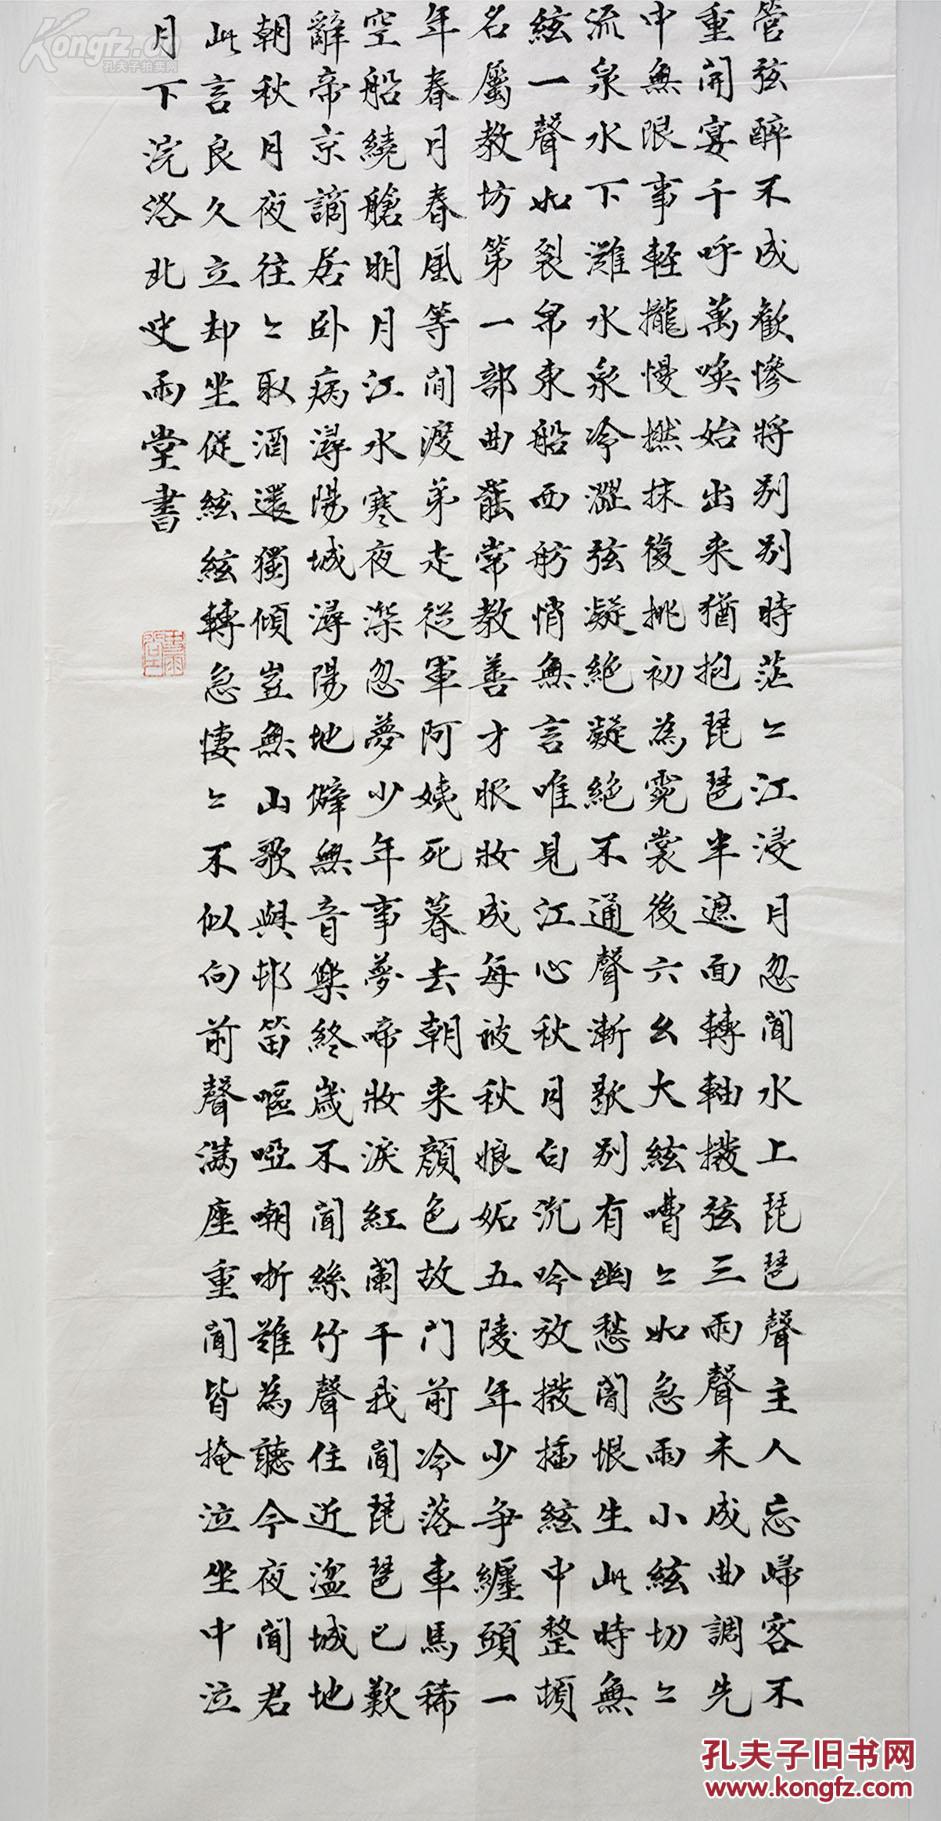 管弦醉不成歡慘將别别時茫〻江浸月忽聞水上琵琶聲主人忘歸客不
重開宴千呼萬喚始出来猶抱琵琶半遮面轉軸撥弦三兩聲未成曲調先
中無限事輕攏慢撚抹復挑初為霓裳後六幺大絃嘈〻如急雨小絃切〻
流泉水下灘水泉冷澀弦凝絶凝絶不通聲漸歇别有幽愁闇恨生此時無
絃一聲如裂帛東船西舫悄無言唯見江心秋月白沉吟放撥插絃中整頓
名屬教坊第一部曲罷常教善才服妝成每被秋娘妬五陵年少争纏頭一
年春月春風等閒渡弟走從軍阿姨死暮去朝来顔色故门前冷落車馬稀
空船繞艙明月江水寒夜深忽夢少年事夢啼妝淚紅闌干我聞琵琶已歎
辭帝京謫居卧病潯陽城潯陽地僻無音樂終歲不聞絲竹聲住近湓城地
朝秋月夜往〻取酒還獨傾豈無山歌與邨笛嘔啞嘲哳難為聽今夜聞君
此言良久立却坐從絃絃轉急悽〻不似向前聲满座重聞皆掩泣坐中泣
月下浣洛北叟雨堂書
Kongfz.cn
孔夫子拍卖网
孔夫子旧书网
www.kongfz.com